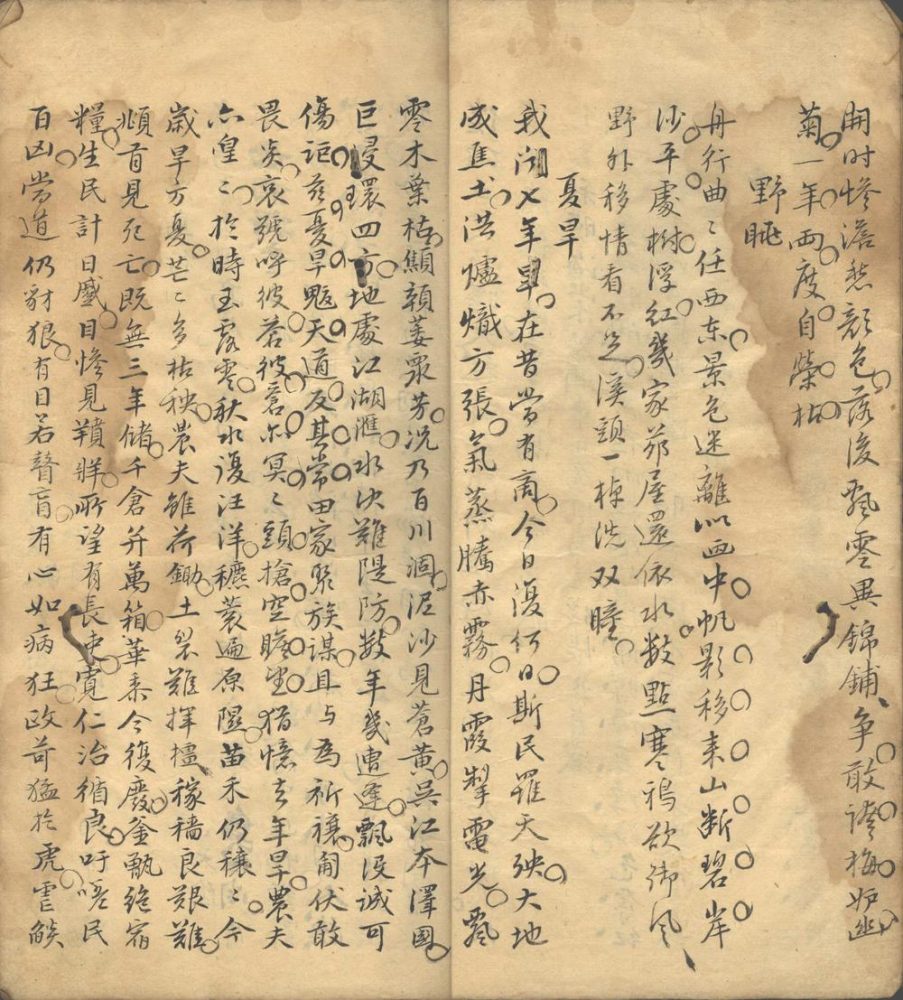 開時慘澹愁顏色落後飄零異錦鋪爭敢誇梅妒幽
菊一年兩度自榮枯
野眺
舟行曲〻任西東景色迷離似画中帆影移来山断碧岸
沙平處樹浮紅幾家茆屋還依水数點寒鴉欲御風
野外移情看不足溪頭一棹洗双瞳
夏旱
我湖七年旱在昔常有商今日復何日斯民罹天殃大地
成焦土洪爐熾方張氣蒸騰赤霧丹霞掣電光飄
零木葉枯顑頷萎眾芳况乃百川涸泥沙見蒼黃吳江本澤國
巨浸環四方地處江湖滙水决難隄防数年幾遭逢飄没誠可
傷詎茲憂旱魃天道反其常田家聚族謀且与為祈禳匍伏敢
畏炎哀號呼彼蒼彼蒼亦冥〻頭搶空瞻望猶憶去年旱農夫
亦皇〻於時玉露零秋水復汪洋穮蓘遍原隰苗禾仍穰〻今
歲旱方憂芒〻多枯秧農夫雖荷鋤土裂難揮櫨稼穡良艱難
頫首見死亡既無三年儲千倉并萬箱華黍今復廢釜甑絶宿
糧生民計日蹙目慘見羵羊所望有長吏寬仁治循良吁嗟民
百凶當道仍豺狼有目若瞽盲有心如病狂政苛猛於虎虐